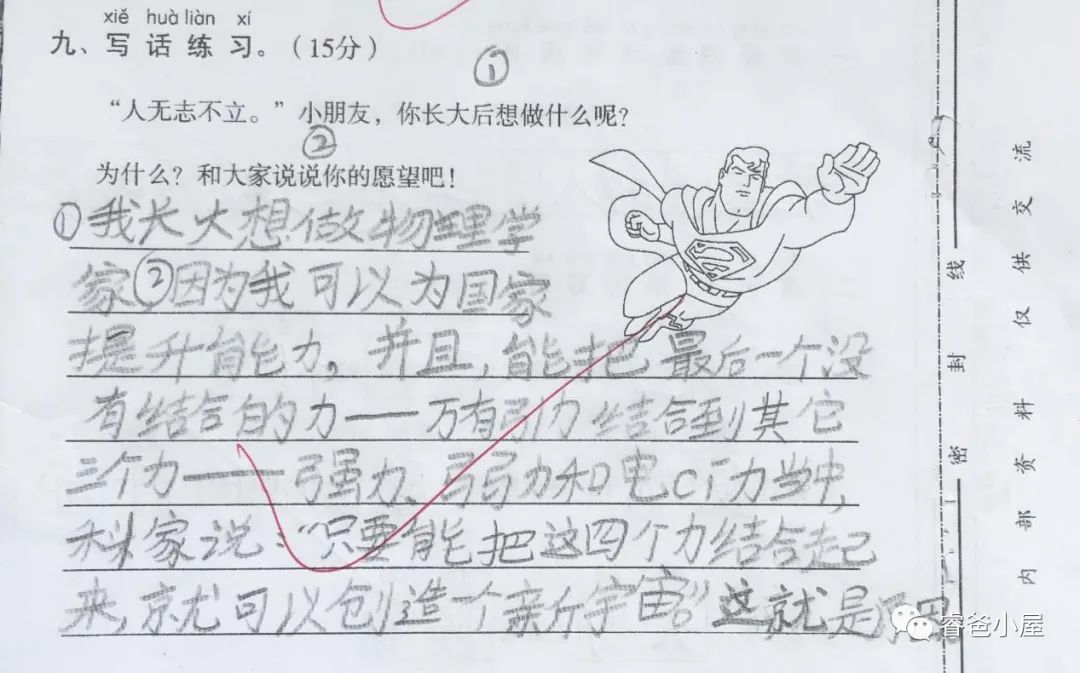 xiě huà liàn xí
九、写话练习。（15分）
①
“人无志不立。”小朋友，你长大后想做什么呢？
②
为什么？和大家说说你的愿望吧！
①我长大想做物理学
家②因为我可以为国家
提升能力，并且，能把最后一个没
有结合的力——万有引力结合到其它
三个力——强力、弱力和电ci力当中，
科家说：“只要能把这四个力结合起
来，就可以创造一个亲斤宇宙。”这就是
睿爸小屋
线
封
密
内部资料仅供交流